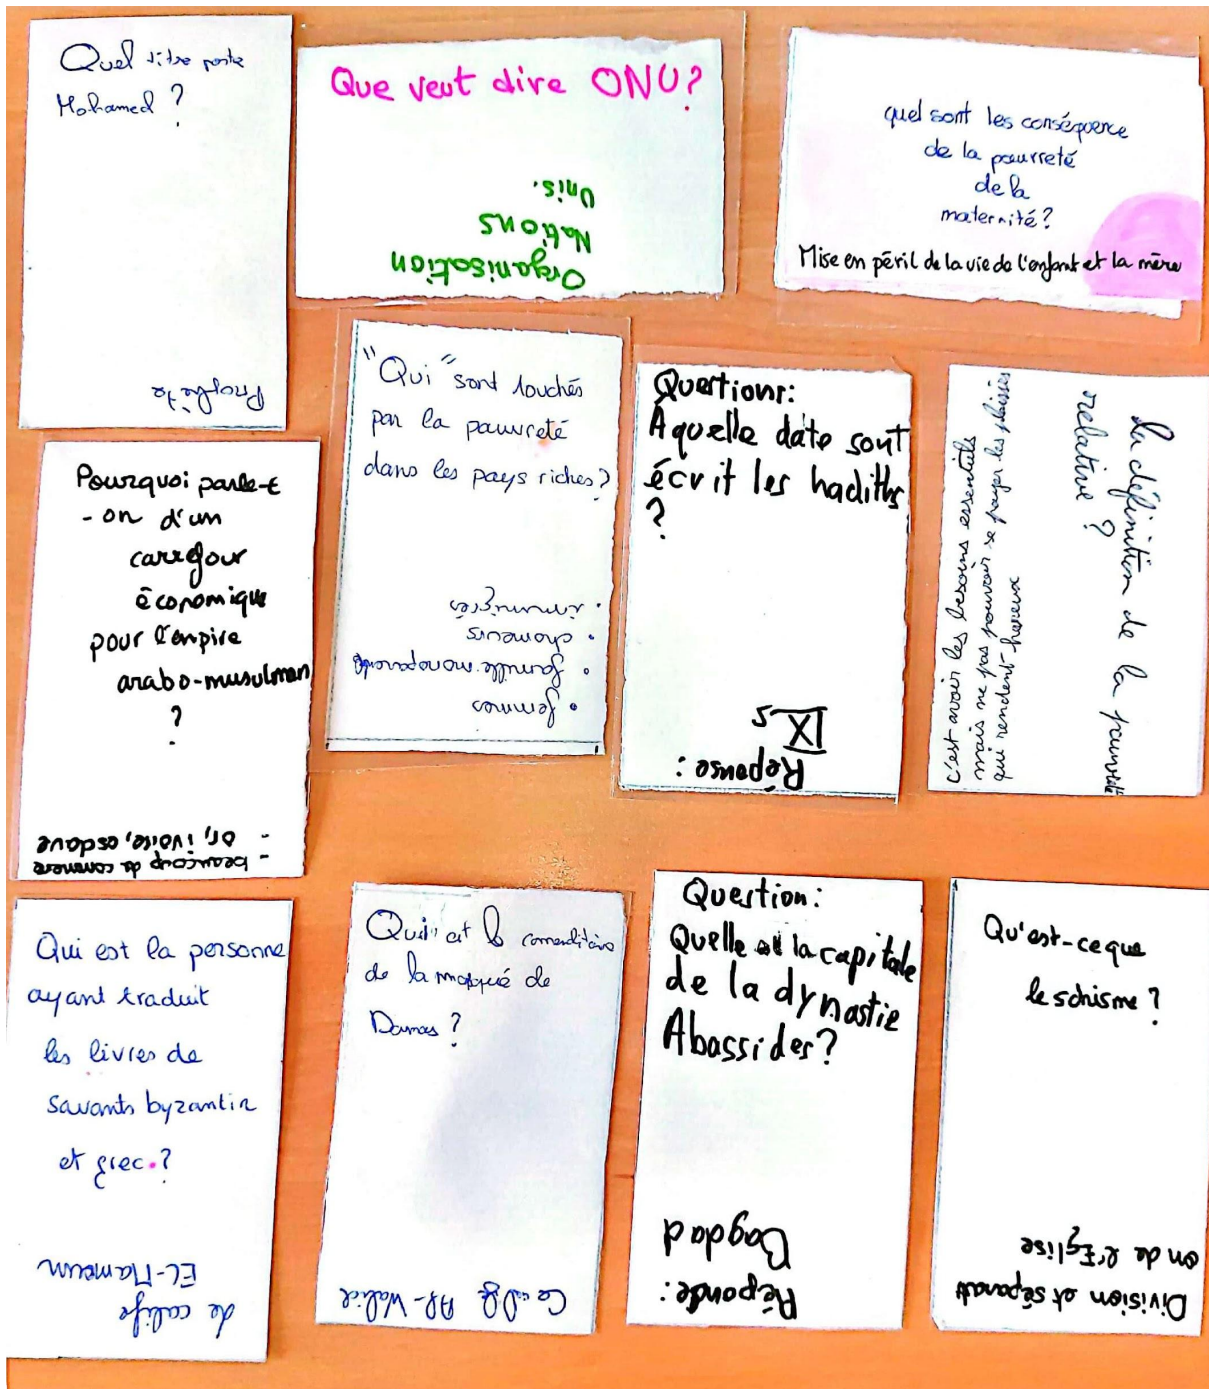 Quel titre porte
Mohamed ?
Prophète
Que veut dire ONU?
Organisation
Nations
Unis.
quel sont les conséquence
de la pauvreté
de la
maternité?
Mise en péril de la vie de l'enfant et la mère
Pourquoi parle-t
-on d'un
carrefour
économique
pour l'empire
arabo-musulman
?
- beaucoup de commerce
- or, ivoire, esclave
"Qui" sont touchés
par la pauvreté
dans les pays riches?
• femmes
• famille monoparentale
• chomeurs
• immigrés
Questions:
À quelle date sont
écrit les hadiths
?
Réponse :
IX s
La définition de la pauvreté
relative ?
c'est avoir les besoins essentiels
mais ne pas pouvoir se payer les plaisirs
qui rendent hereux
Qui est la personne
ayant traduit
les livres de
savants byzantin
et grec.?
Le calife
EL-Mamoun
Qui est le comenditaire
de la mosqué de
Damas ?
Calife Al-Walid
Question:
Quelle est la capitale
de la dynastie
Abassides?
Réponse:
Bagdad
Qu'est-ce que
le schisme ?
Division et séparati
on de l'Eglise